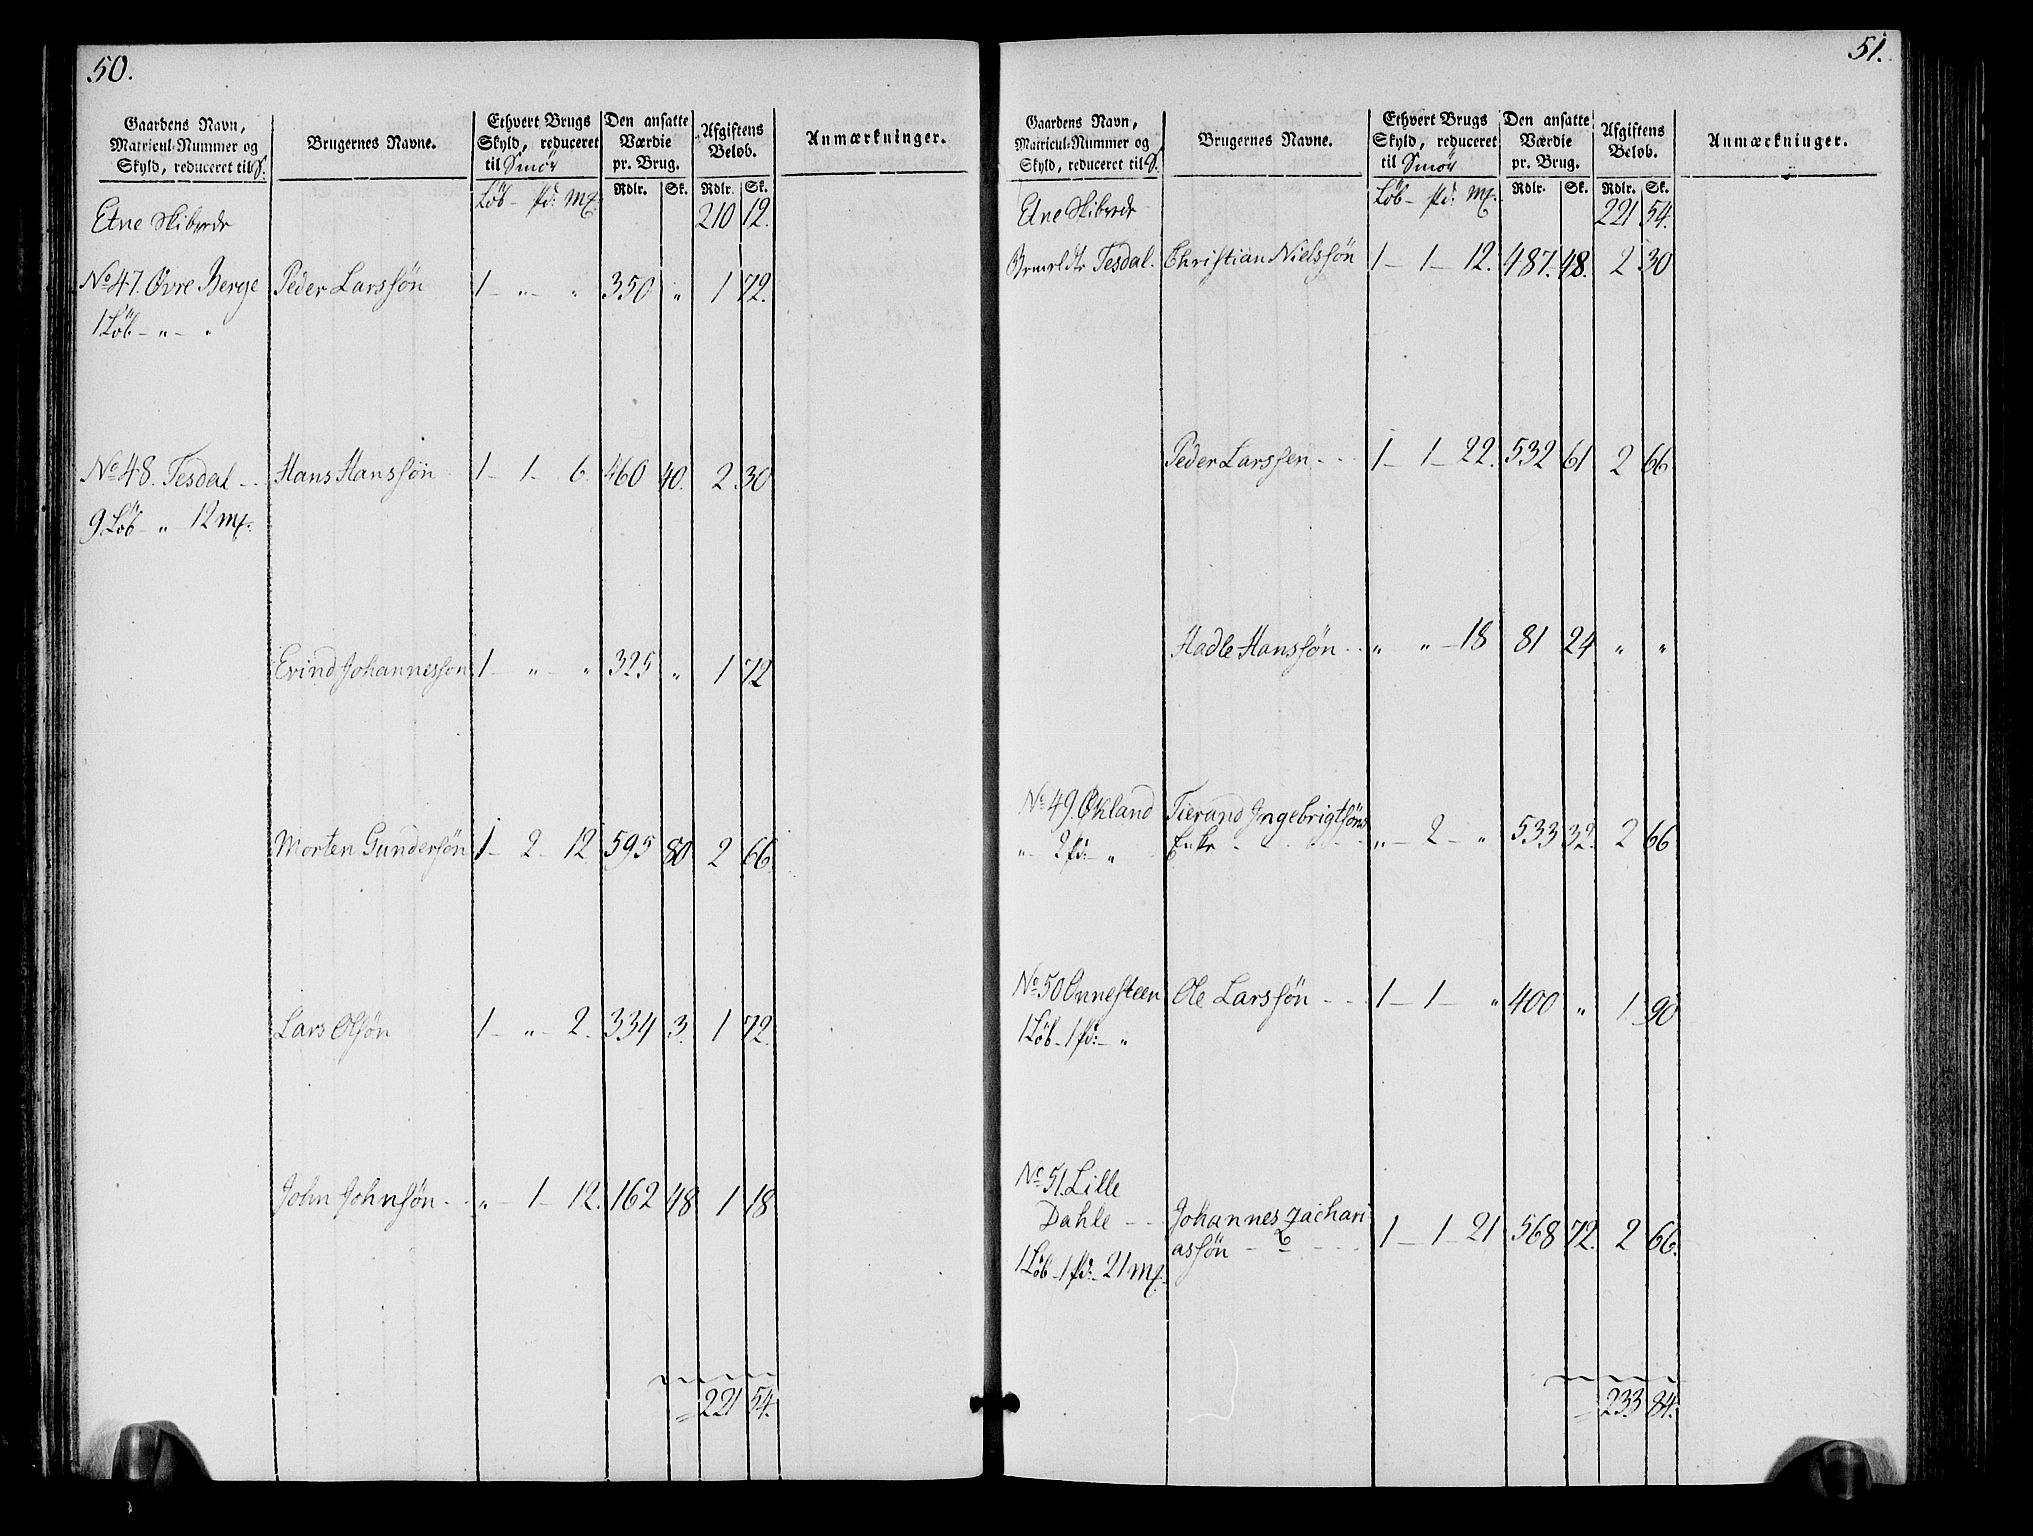 50.
Gaardens Navn, Matricul-Nummer og Skyld, reduceret til S. | Brugernes Navne. | Ethvert Brugs Skyld, reduceret til Smör | Den ansatte Værdie pr. Brug. | Afgiftens Beløb. | Anmærkninger.
Löb - pd: mk. | Rdlr. | Sk. | Rdlr. | Sk.
Etne Skibrede 210 12.
No 47. Övre Berge Peder Larssön 1 - " - " 350 " 1 72.
1 Löb - " - "
No 48. Tesdal - - Hans Hanssön 1 - 1 - 6. 460 40. 2 30
9 Löb - " 12 mk.
Evind Johannesson 1 - " - " 325 " 1 72
Morten Gundersön 1 - 2 - 12 595 80 2 66
Lars Olsön 1 - " - 2. 334 3. 1 72.
John Johnsön - - " - 1 - 12. 162 48 1 18
= 221 54.
51.
Gaardens Navn, Matricul-Nummer og Skyld, reduceret til S. | Brugernes Navne. | Ethvert Brugs Skyld, reduceret til Smör | Den ansatte Værdie pr. Brug. | Afgiftens Beløb. | Anmærkninger.
Löb - pd: mk. | Rdlr. | Sk. | Rdlr. | Sk.
Etne Skibrede 221 54.
Tesdal. Christian Nielssön 1 - 1 - 12. 487. 48. 2 30
Peder Larssen - - 1 - 1 - 22. 532 61 2 66
Hadle Hanssön - - " " - 18 81 24 " "
No 49. Ökland Tierand Ingebrigtsöns
" - 2 pd: - " Enke - - - " - 2 - " 533 32. 2 66
No 50 Onnesteen Ole Larssön - - 1 - 1 - " 400 " 1 90
1 Löb - 1 pd: - "
No 51. Lille
Dahle - - Johannes Zachari-
assön - - - 1 - 1 - 21 568 72. 2 66.
1 Löb - 1 pd: - 21 mk.
= 233 84.